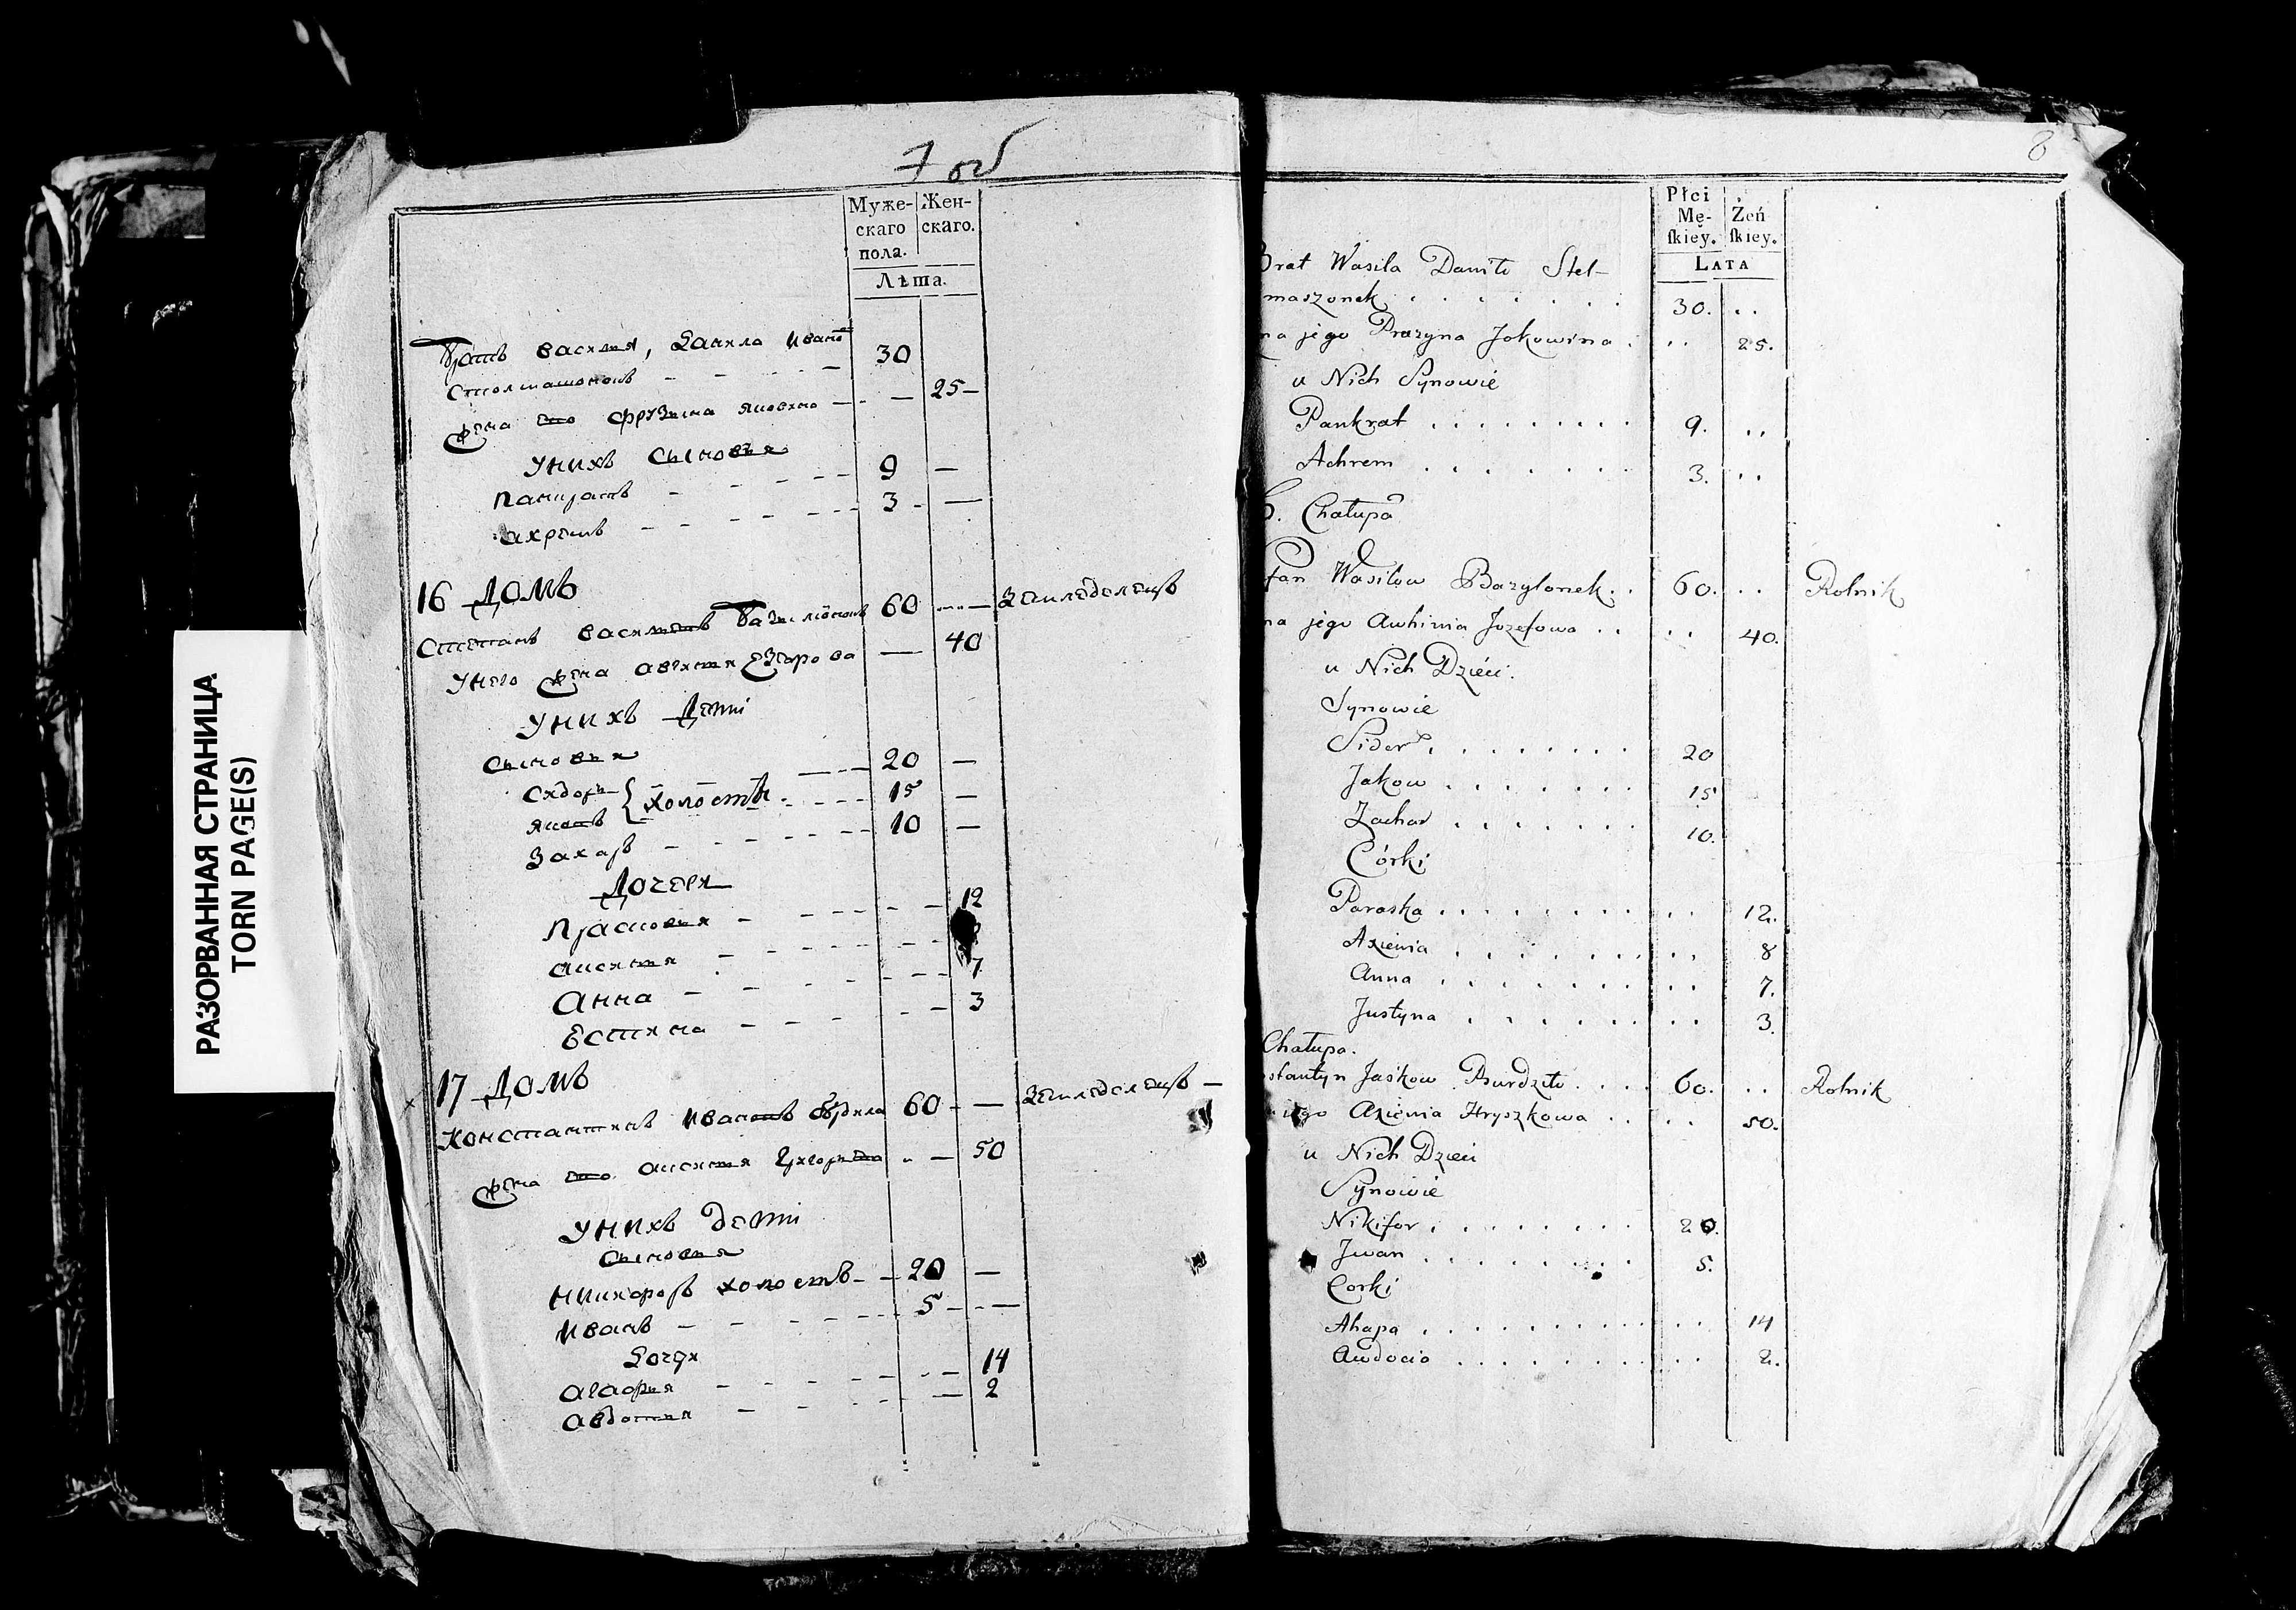 РАЗОРВАННАЯ СТРАНИЦА
TORN PAGE(S)
7 об
Муже-
скаго
пола.
Жен-
скаго.
Лѣта.
братъ василия, Данила Ивано
Столмашонокъ - - - - 30
жена его Фрузина яковле - - 25 -
У нихъ Сыновья
Панкратъ - - - - - 9 -
ахремъ - - - - - 3 - -
16 Домъ
Степанъ василіевъ базилионокъ 60 - Земледелецъ
У него жена - 40
У нихъ Дети
Сыновья
Сидоръ } холосты - - - 20 -
яковъ - - - 15 -
Захаръ - - - - - 10 -
Дочери
Прасковья - - - - - 12
аксинья - - - - -
Анна - - - - - 7
Естина - - - - - 3
17 Домъ
Константинъ Ивановъ бурдила 60 - - Земледелецъ -
жена его аксинья - 50
У нихъ дети
Сыновья
Никифоръ холостъ - - 20 -
Иванъ - - - - - 5 - - -
Дочери
агафия - - - - - 14
авдотия - - - - - 2
8
Płci
Mę-
ſkiey.
Żeń
ſkiey.
LATA
Brat Wasila Daniło Stel-
maszonek . . . . . . . 30. . .
na jego Pruzyna Jakowina . . . 25.
u Nich Synowie
Pankrat . . . . . . . . . 9. . .
Achrem . . . . . . . 3. . .
6. Chałupa
fan Wasilow Bazylonek . . 60. . . Rolnik
na jego Auhinia Jozefowa . . . . 40.
u Nich Dzieci.
Synowie
Sidor . . . . . . . . 20
Jakow . . . . . . . 15
Zachar . . . . . . . 10.
Córki
Paraska . . . . . . . . . . 12.
Axienia . . . . . . . . . 8
Anna . . . . . . . . . . 7.
Justyna . . . . . . . . . 3.
Chałupa.
stantyn Jaśkow Burdziło . . . 60. . . Rolnik
iego Axienia Hryszkowa . . . . 50.
u Nich Dzieci
Synowie
Nikifor . . . . . . . . 20.
Jwan . . . . . . . . 5.
Corki
Ahapa . . . . . . . . . . . 14
Awdocia . . . . . . . . . . 2.